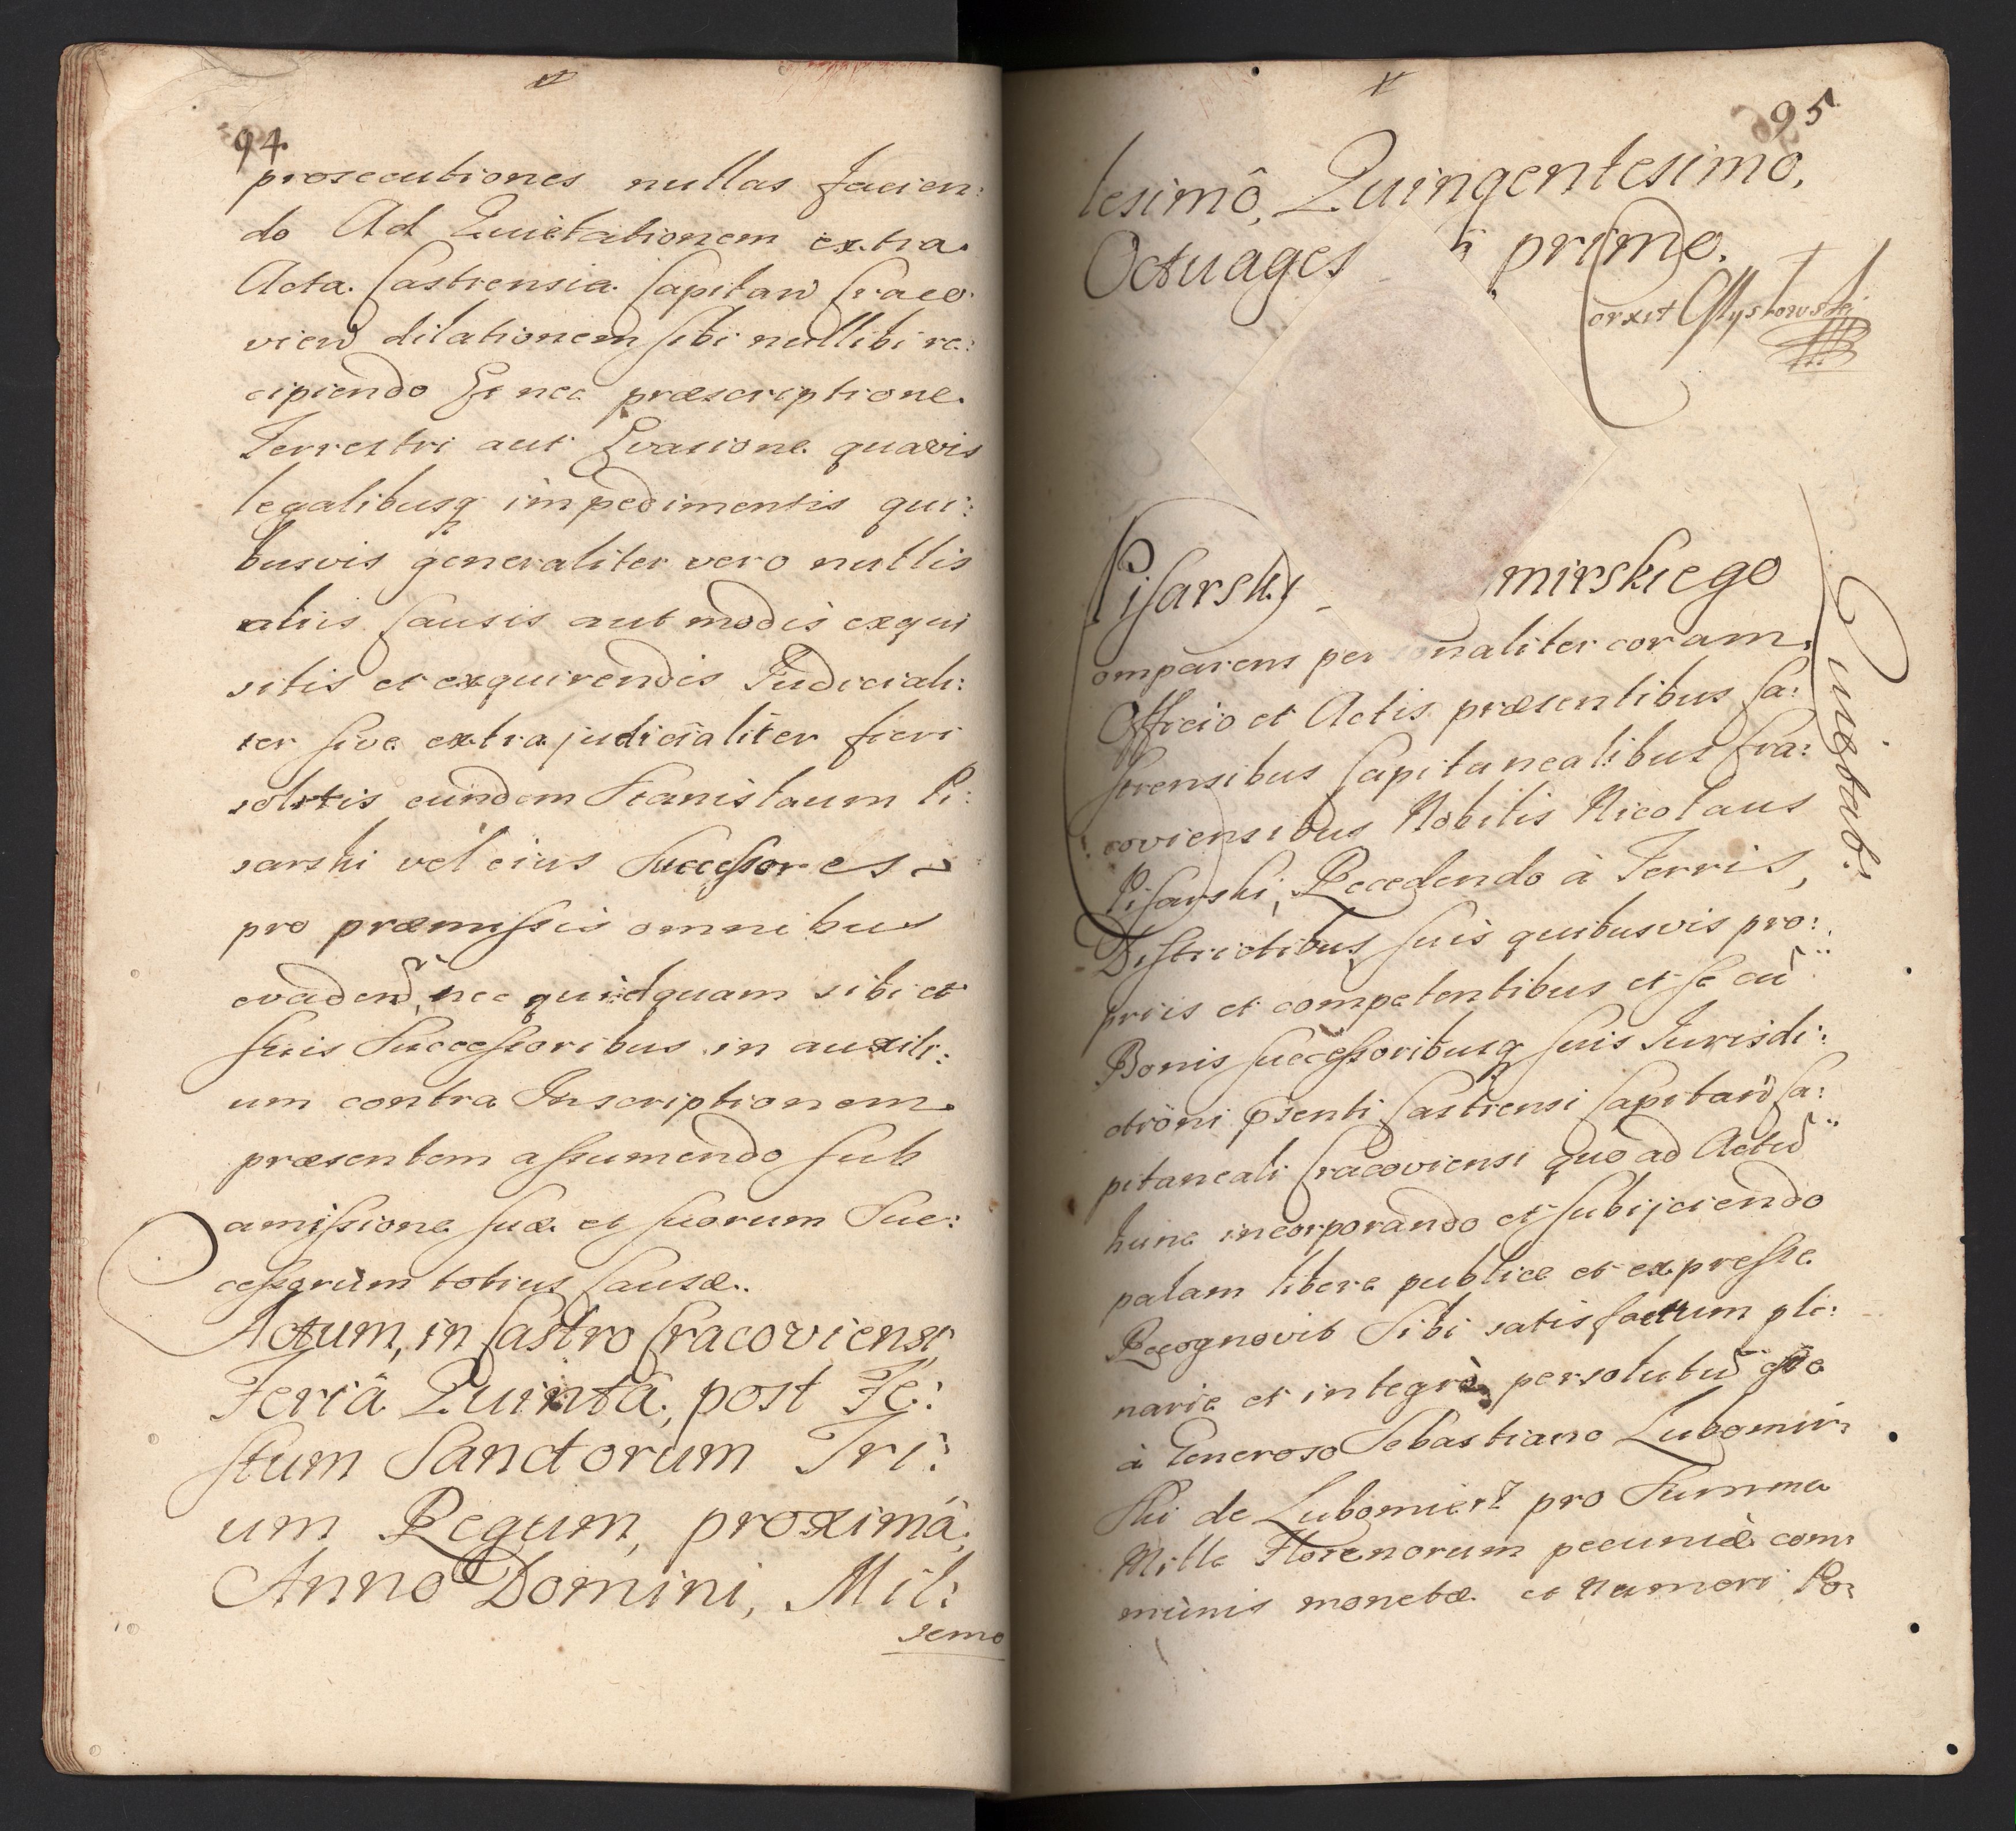 94.
prosecutiones nullas facien:
do Ad Quietationem extra
Acta Castrensia Capitan Craco
vien dilationem sibi nullibi re:
cipiendo Et nec præscriptione
Terrestri aut Evasione quavis
legalibusq impedimentis qui:
busvis generaliter vero nullis
aliis Causis aut modis exqui
sitis et exquirendis Judiciali:
ter sive extrajudicialiter fieri
solitis eundem Stanislaum Pi:
sarski vel eius Successores
pro præmissis omnibus
evadend, nec quidquam sibi et
suis Successoribus in auxili:
um contra Inscriptionem
præsentem assumendo sub
amissione suæ et suorum Suc:
cessorum totius Causæ.
Actum, in Castro Cracoviensi
Feriâ Quintâ, post Fe:
stum Sanctorum Tri:
um Regum, proximâ,
Anno Domini, Mil:
semo
95
lesimô, Quingentesimo,
Octuages primo.
Corxit
Pisarsky mirskiego
Quietat:
omparens personaliter coram
Officio et Actis præsentibus Ca:
strensibus Capitanealibus Cra:
coviensibus Nobilis Nicolaus
Pisarski, Recedendo à Terris,
Districtibus suis quibusvis pro:
priis et competentibus et se cū
Bonis successoribusq suis Jurisdi:
ctioni psenti Castrensi Capitan Ca:
pitaneali Cracoviensi quo ad Actū
hunc incorporando et subijciendo
palam libere publice et expresse
Recognovit Sibi satisfactum ple:
narie et integrè persolutū esse
à Generoso Sebastiano Lubomir:
ski de Lubomierz pro Summa
Mille Florenorum pecuniæ com:
munis monetæ et numeri Po: